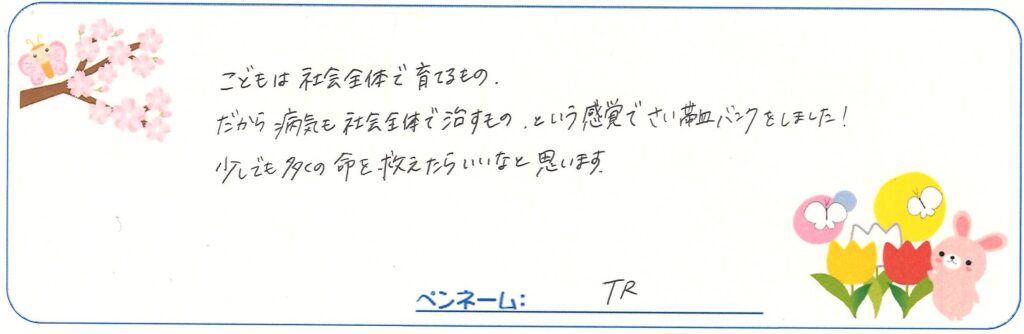 こどもは社会全体で育てるもの.
だから病気も社会全体で治すもの.という感覚でさい帯血バンクをしました!
少しでも多くの命を救えたらいいなと思います.
ペンネーム: TR